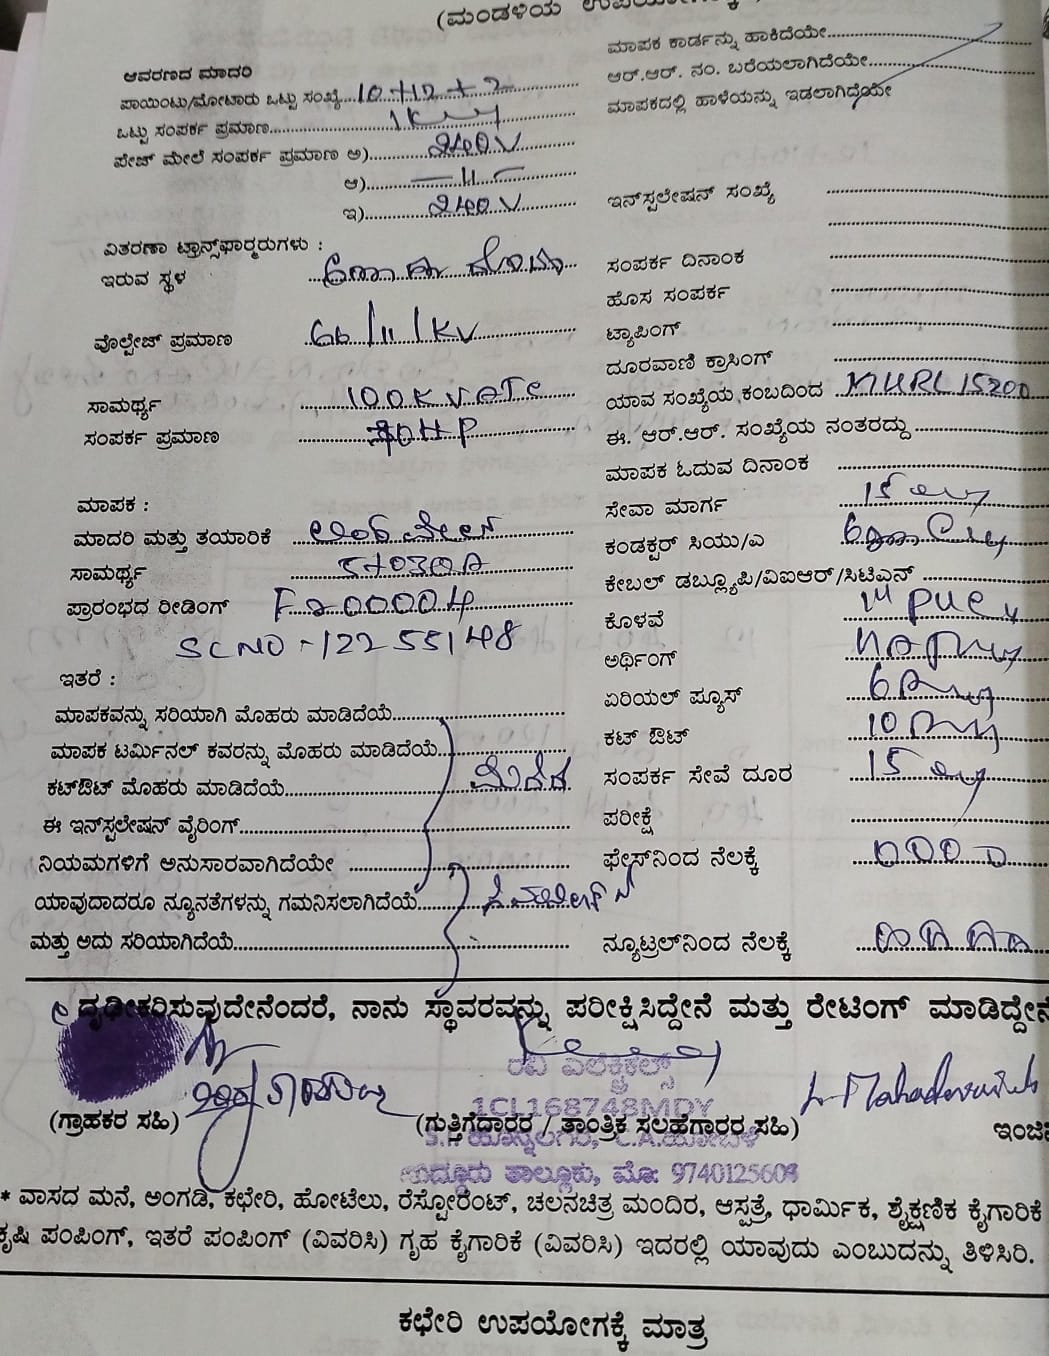 (ಮಂಡಳಿಯ ಉಪಯೋಗಕ್ಕೆ
ಆವರಣದ ಮಾದರಿ
ಪಾಯಿಂಟು/ಮೋಟಾರು ಒಟ್ಟು ಸಂಖ್ಯೆ 10+12+2
ಒಟ್ಟು ಸಂಪರ್ಕ ಪ್ರಮಾಣ 1KW
ಪೇಜ್ ಮೇಲೆ ಸಂಪರ್ಕ ಪ್ರಮಾಣ ಅ) 240V
ಆ) —11—
ಇ) 240V
ವಿತರಣಾ ಟ್ರಾನ್ಸ್‌ಫಾರ್ಮರುಗಳು :
ಇರುವ ಸ್ಥಳ
ವೊಲ್ಟೇಜ್ ಪ್ರಮಾಣ 66/11/KV
ಸಾಮರ್ಥ್ಯ 100KVATC
ಸಂಪರ್ಕ ಪ್ರಮಾಣ HP
ಮಾಪಕ :
ಮಾದರಿ ಮತ್ತು ತಯಾರಿಕೆ
ಸಾಮರ್ಥ್ಯ 5+030A
ಪ್ರಾರಂಭದ ರೀಡಿಂಗ್ F200004
SCNO-12255148
ಇತರೆ :
ಮಾಪಕವನ್ನು ಸರಿಯಾಗಿ ಮೊಹರು ಮಾಡಿದೆಯೆ
ಮಾಪಕ ಟರ್ಮಿನಲ್ ಕವರನ್ನು ಮೊಹರು ಮಾಡಿದೆಯೆ
ಕಟ್‌ಔಟ್ ಮೊಹರು ಮಾಡಿದೆಯೆ
ಈ ಇನ್‌ಸ್ಟಲೇಷನ್ ವೈರಿಂಗ್
ನಿಯಮಗಳಿಗೆ ಅನುಸಾರವಾಗಿದೆಯೇ
ಯಾವುದಾದರೂ ನ್ಯೂನತೆಗಳನ್ನು ಗಮನಿಸಲಾಗಿದೆಯೆ
ಮತ್ತು ಅದು ಸರಿಯಾಗಿದೆಯೆ
ಮಾಪಕ ಕಾರ್ಡನ್ನು ಹಾಕಿದೆಯೇ
ಆರ್.ಆರ್. ನಂ. ಬರೆಯಲಾಗಿದೆಯೇ
ಮಾಪಕದಲ್ಲಿ ಹಾಳೆಯನ್ನು ಇಡಲಾಗಿದೆಯೇ
ಇನ್‌ಸ್ಟಲೇಷನ್ ಸಂಖ್ಯೆ
ಸಂಪರ್ಕ ದಿನಾಂಕ
ಹೊಸ ಸಂಪರ್ಕ
ಟ್ಯಾಪಿಂಗ್
ದೂರವಾಣಿ ಕ್ರಾಸಿಂಗ್
ಯಾವ ಸಂಖ್ಯೆಯ ಕಂಬದಿಂದ MURL15200
ಈ. ಆರ್.ಆರ್. ಸಂಖ್ಯೆಯ ನಂತರದ್ದು
ಮಾಪಕ ಓದುವ ದಿನಾಂಕ
ಸೇವಾ ಮಾರ್ಗ 15
ಕಂಡಕ್ಟರ್ ಸಿಯು/ಎ
ಕೇಬಲ್ ಡಬ್ಲ್ಯೂಪಿ/ವಿಐಆರ್/ಸಿಟಿಎಸ್
ಕೊಳವೆ
ಅರ್ಥಿಂಗ್
ಏರಿಯಲ್ ಫ್ಯೂಸ್
ಕಟ್ ಔಟ್ 10
ಸಂಪರ್ಕ ಸೇವೆ ದೂರ 15
ಪರೀಕ್ಷೆ
ಫೇಸ್‌ನಿಂದ ನೆಲಕ್ಕೆ
ನ್ಯೂಟ್ರಲ್‌ನಿಂದ ನೆಲಕ್ಕೆ
ದೃಢೀಕರಿಸುವುದೇನೆಂದರೆ, ನಾನು ಸ್ಥಾವರವನ್ನು ಪರೀಕ್ಷಿಸಿದ್ದೇನೆ ಮತ್ತು ರೇಟಿಂಗ್ ಮಾಡಿದ್ದೇನೆ
ರವಿ ಎಲೆಕ್ಟ್ರಿಕಲ್ಸ್
1CL168748MDY
(ಗ್ರಾಹಕರ ಸಹಿ) (ಗುತ್ತಿಗೆದಾರರ / ತಾಂತ್ರಿಕ ಸಲಹೆಗಾರರ ಸಹಿ) ಇಂಜಿ
ಮದ್ದೂರು ತಾಲ್ಲೂಕು, ಮೊ: 9740125608
* ವಾಸದ ಮನೆ, ಅಂಗಡಿ, ಕಛೇರಿ, ಹೋಟೆಲು, ರೆಸ್ಟೋರೆಂಟ್, ಚಲನಚಿತ್ರ ಮಂದಿರ, ಆಸ್ಪತ್ರೆ, ಧಾರ್ಮಿಕ, ಶೈಕ್ಷಣಿಕ ಕೈಗಾರಿಕೆ
ಕೃಷಿ ಪಂಪಿಂಗ್, ಇತರೆ ಪಂಪಿಂಗ್ (ವಿವರಿಸಿ) ಗೃಹ ಕೈಗಾರಿಕೆ (ವಿವರಿಸಿ) ಇದರಲ್ಲಿ ಯಾವುದು ಎಂಬುದನ್ನು ತಿಳಿಸಿರಿ.
ಕಛೇರಿ ಉಪಯೋಗಕ್ಕೆ ಮಾತ್ರ